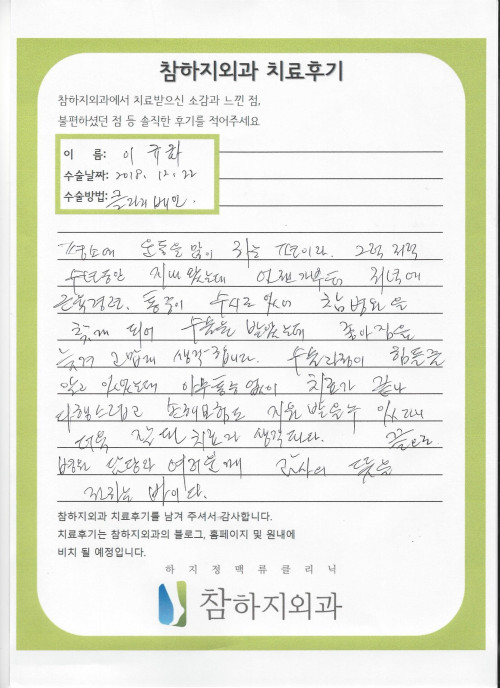 참하지외과 치료후기
참하지외과에서 치료받으신 소감과 느낀 점,
불편하셨던 점 등 솔직한 후기를 적어주세요
이 름: 이규화
수술날짜: 2018. 12. 22
수술방법: 클라리베인.
평소에 운동을 많이 하는 편이라. 그럭저럭
수년동안 지내 왔는데 언젠가부터 저녁에
근육경련. 통증이 수시로 있어 참병원을
찾게 되어 수술을 받았는데 좋아짐을
느껴 고맙게 생각합니다. 수술과정이 힘든줄
알고 있었는데 아무통증없이 치료가 끝나
다행스럽고 손해보험도 지원받을수 있다니
더욱 잘된 치료라 생각된다. 끝으로
병원 담당의 여러분께 감사의 뜻을
전하는 바이다.
참하지외과 치료후기를 남겨 주셔서 감사합니다.
치료후기는 참하지외과의 블로그, 홈페이지 및 원내에
비치 될 예정입니다.
하지정맥류클리닉
참하지외과